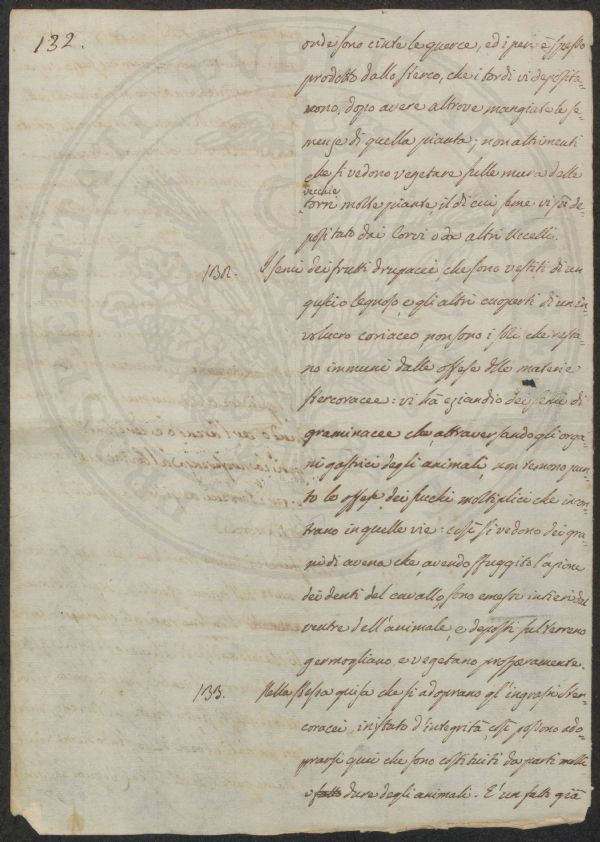 132.
onde sono cinte le querce, ed i peri è spesso
prodotto dallo sterco, che i tordi vi deposita-
rono, dopo avere altrove mangiate le se-
menze di quella pianta; non altrimenti
che si vedono vegetare sulle mura delle
vecchie
torri molte piante, il di cui seme vi fù de-
positato dai Corvi o da altri Uccelli.
132. I semi dei frutti drupacei, che sono vestiti di un
guscio legnoso, e gli altri cuoperti di un in-
volucro coriaceo, non sono i soli che resta-
no immuni dalle offese delle materie
stercoracee: vi hà eziandio dei semi di
graminacee che attraversando gli orga-
ni gastrici degli animali, non temono pun-
to le offese dei succhi moltiplici che incon-
trano in quelle vie: così si vedono dei gra-
ni di avena che, avendo sfuggito l'azione
dei denti del cavallo, sono emessi intieri dal
ventre dell'animale, e deposti sul terreno
germogliano, e vegetano prosperamente.
133. Nella stessa guisa che si adoprano gl'ingrassi ster-
coracei, in istato d'integrità, così possono ado-
prarsi quei che sono costituiti da parti molli
e dure degli animali. E' un fatto già